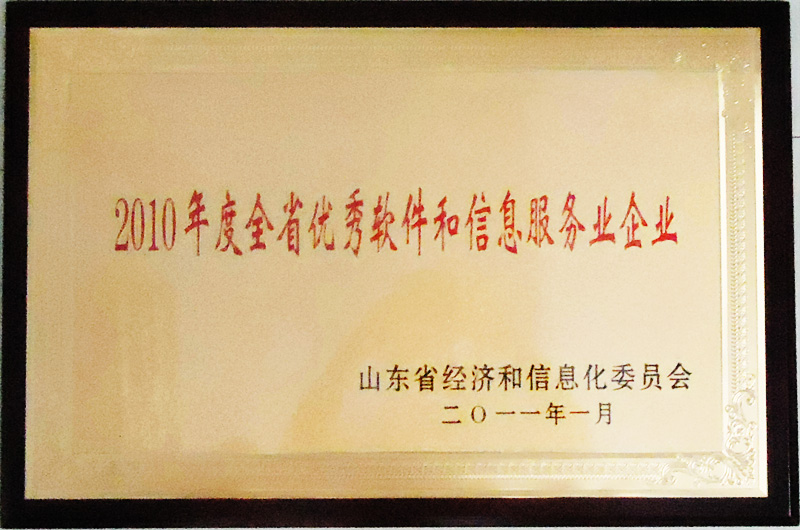 2010年度全省优秀软件和信息服务业企业
山东省经济和信息化委员会
二〇一一年一月